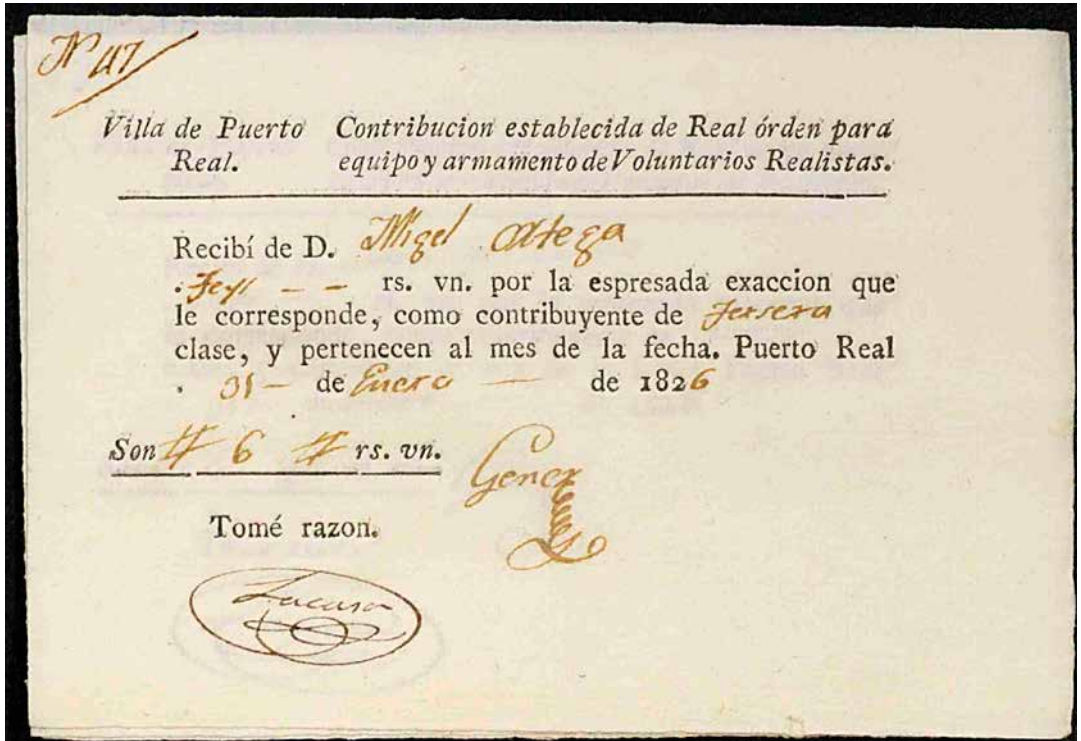 Nº 47
Villa de Puerto Real.
Contribucion establecida de Real órden para
equipo y armamento de Voluntarios Realistas.
Recibí de D. Migel Ortega
Seys rs. vn. por la espresada exaccion que
le corresponde, como contribuyente de tersera
clase, y pertenecen al mes de la fecha. Puerto Real
31 de Enero de 1826
Son # 6 # rs. vn.
Tomé razon.